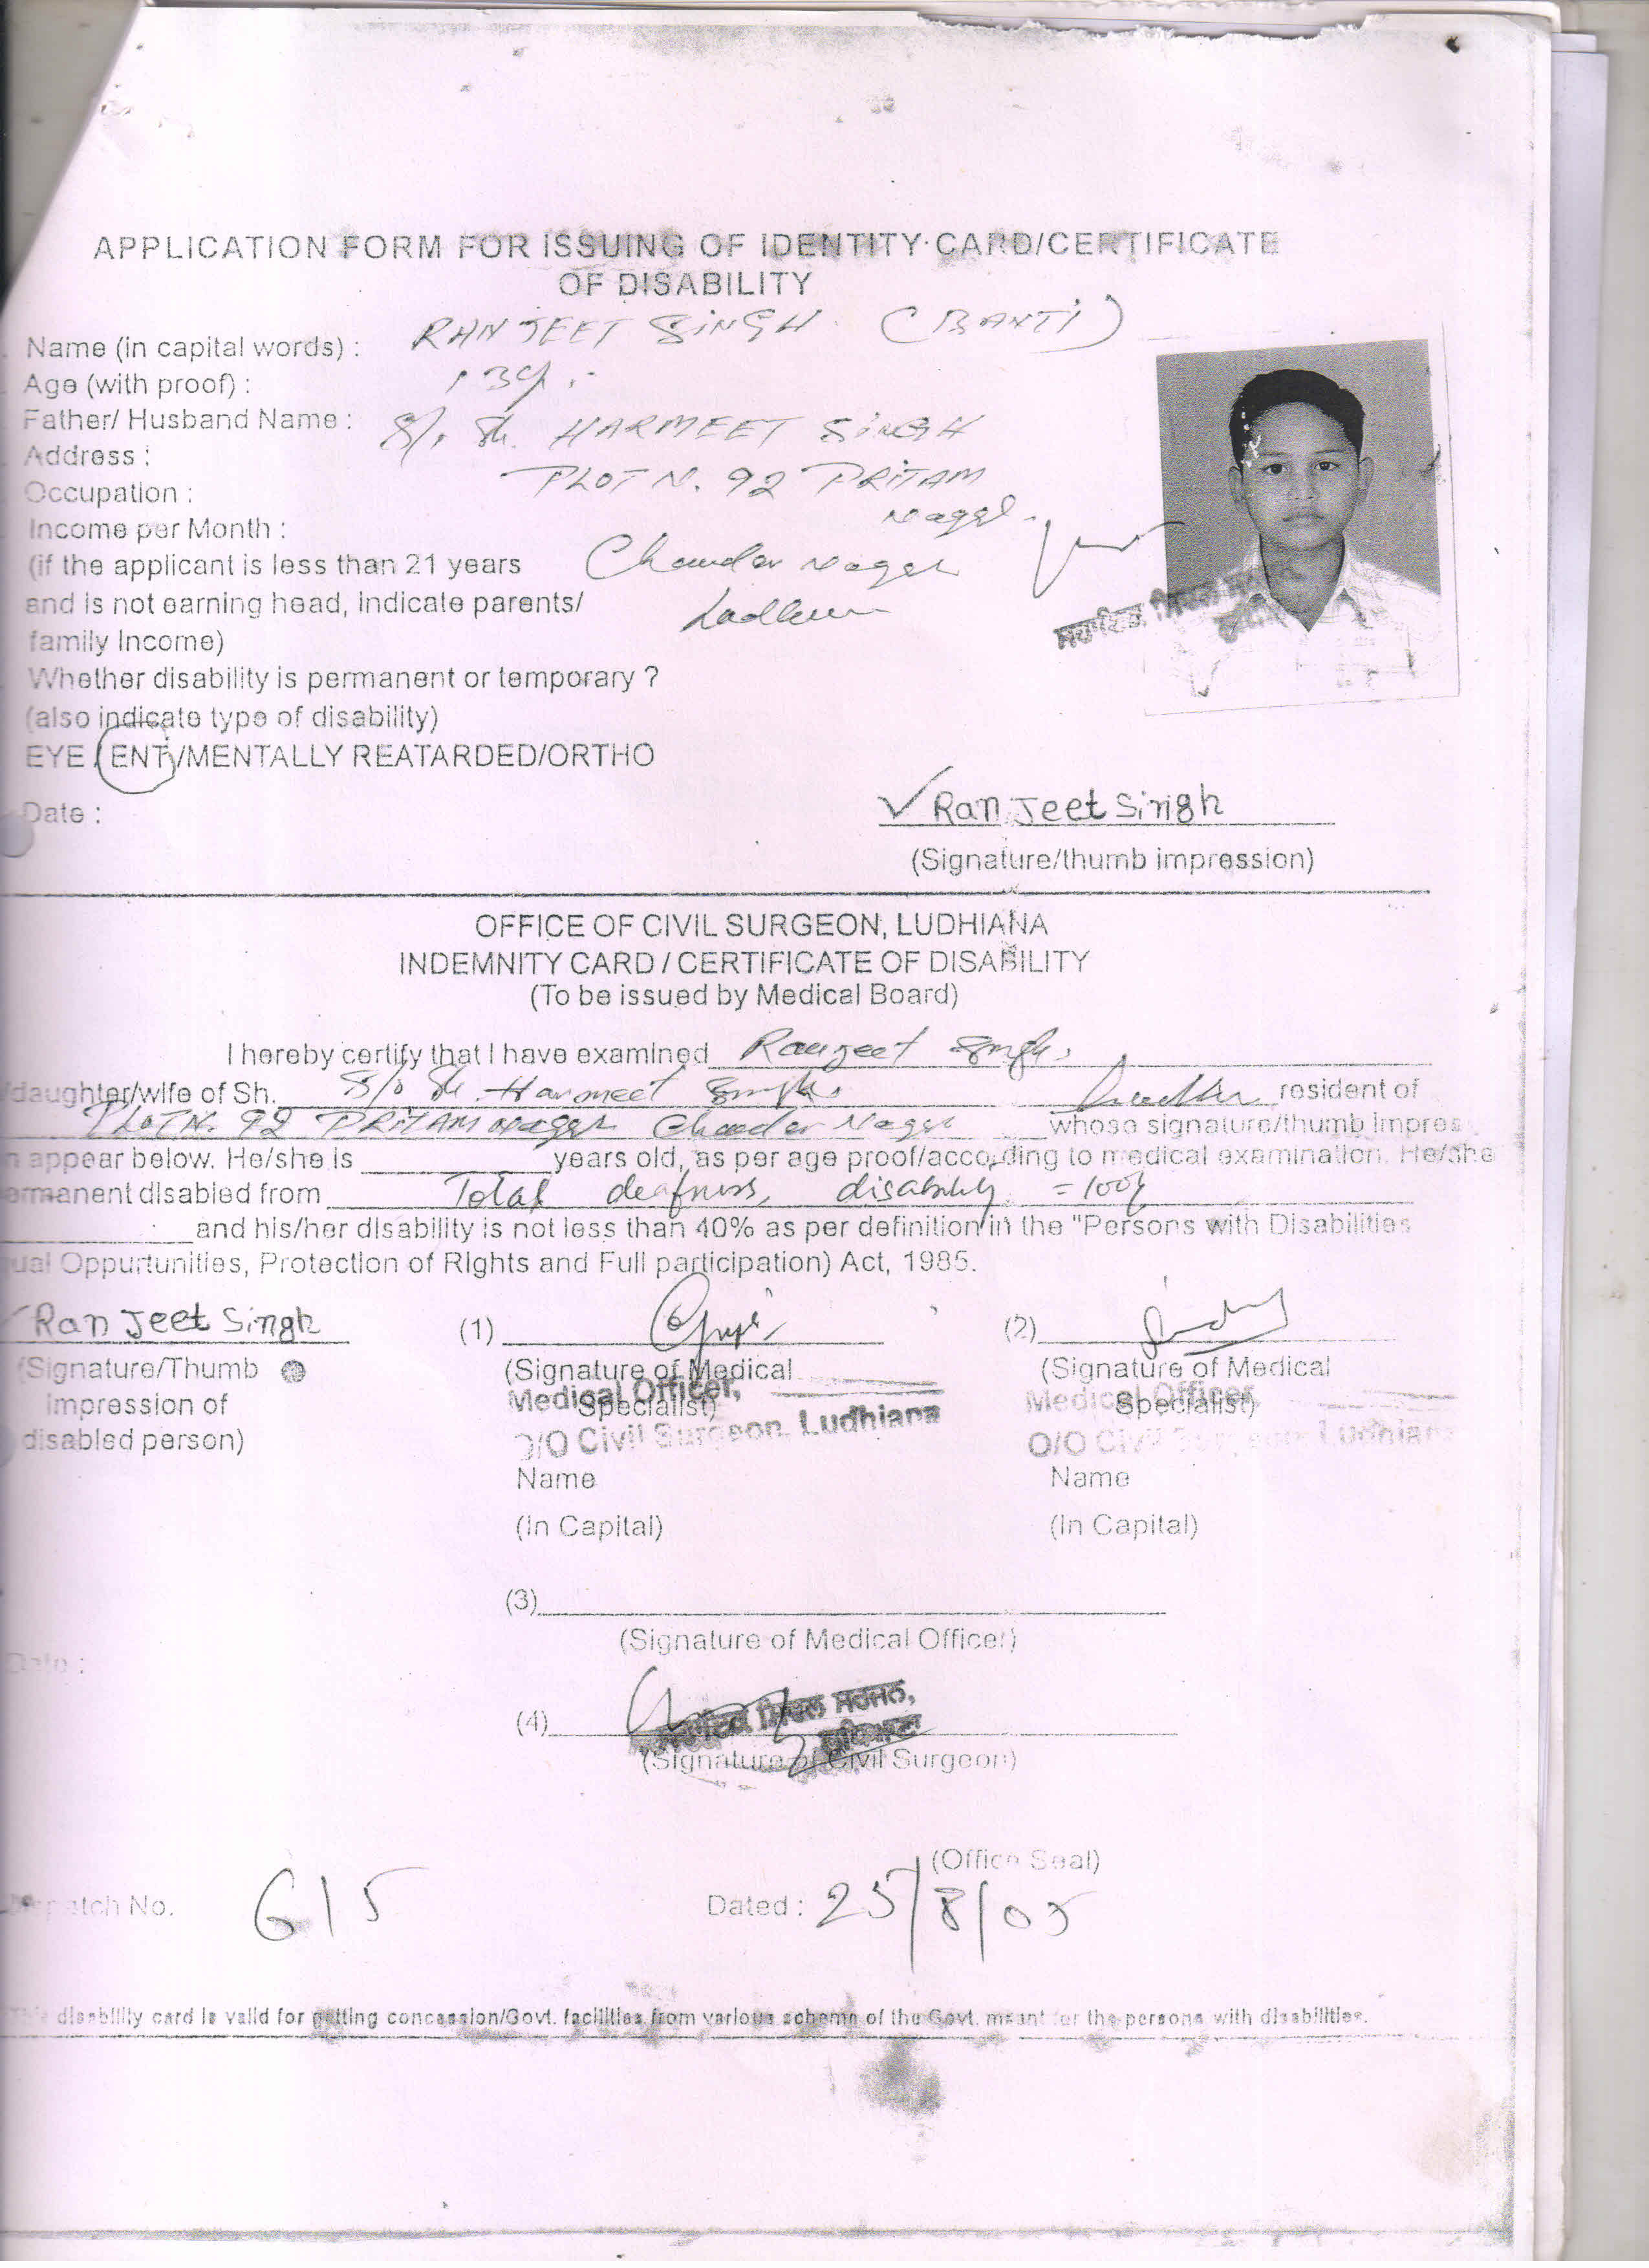 APPLICATION FORM FOR ISSUING OF IDENTITY CARD/CERTIFICATE
OF DISABILITY
Name (in capital words) : RANJEET SINGH (BANTI)
Age (with proof) : 13y.
Father/ Husband Name : S/o Sh. HARMEET SINGH
Address : PLOT N. 92 PRITAM
Occupation : Nagar
Income per Month :
(if the applicant is less than 21 years Chander Nagar
and is not earning head, indicate parents/
family Income)
Whether disability is permanent or temporary ?
(also indicate type of disability)
EYE / ENT /MENTALLY REATARDED/ORTHO
Date :
Ranjeet Singh
(Signature/thumb impression)
OFFICE OF CIVIL SURGEON, LUDHIANA
INDEMNITY CARD / CERTIFICATE OF DISABILITY
(To be issued by Medical Board)
I hereby certify that I have examined Ranjeet Singh
/daughter/wife of Sh. S/o Sh. Harmeet Singh resident of
PLOT N. 92 PRITAM Nagar Chander Nagar whose signature/thumb impres
appear below. He/she is years old, as per age proof/according to medical examination. He/she
manent disabled from Total deafness, disability = 100%
and his/her disability is not less than 40% as per definition in the "Persons with Disabilities
ual Oppurtunities, Protection of Rights and Full participation) Act, 1985.
Ranjeet Singh (1) (2)
(Signature/Thumb (Signature of Medical (Signature of Medical
Impression of Specialist) Specialist)
Medical Officer, Medical Officer
disabled person) O/O Civil Surgeon, Ludhiana O/O Civil Surgeon Ludhiana
Name Name
(In Capital) (In Capital)
(3)
(Signature of Medical Officer)
Date :
(4)
ਸਹਾਇਕ ਸਿਵਲ ਸਰਜਨ,
ਲੁਧਿਆਣਾ
(Signature of Civil Surgeon)
(Office Seal)
patch No. 615 Dated : 25/8/05
disability card is valid for getting concession/Govt. facilities from various scheme of the Govt. meant for the persons with disabilities.